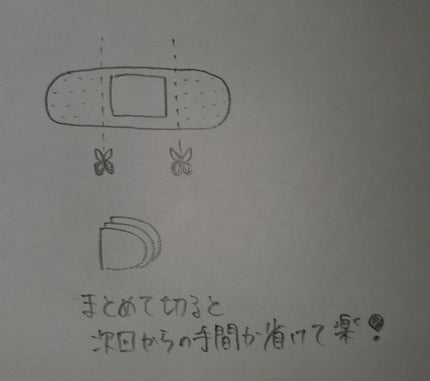 まとめて切ると
次回からの手間が省けて楽!